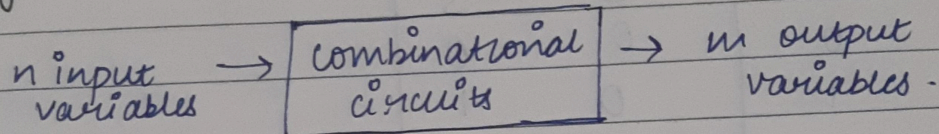 n input variables → combinational circuits → m output variables.